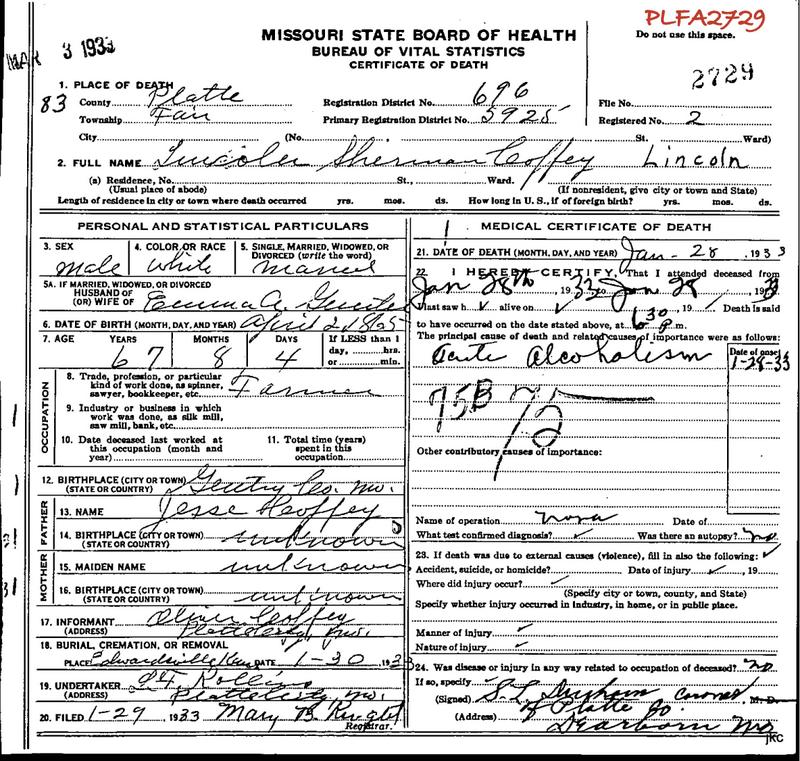 PLFA2729
MAR 3 1933
MISSOURI STATE BOARD OF HEALTH
BUREAU OF VITAL STATISTICS
CERTIFICATE OF DEATH
Do not use this space.
2729
1. PLACE OF DEATH
83 County Platte Registration District No. 696 File No.
Township Fair Primary Registration District No. 5925 Registered No. 2
City (No. St. Ward)
2. FULL NAME Lincoln Sherman Coffey Lincoln
(a) Residence, No. St., Ward.
(Usual place of abode) (If nonresident, give city or town and State)
Length of residence in city or town where death occurred yrs. mos. ds. How long in U. S., if of foreign birth? yrs. mos. ds.
PERSONAL AND STATISTICAL PARTICULARS
3. SEX
Male
4. COLOR OR RACE
White
5. SINGLE, MARRIED, WIDOWED, OR
DIVORCED (write the word)
5A. IF MARRIED, WIDOWED, OR DIVORCED
HUSBAND OF
(OR) WIFE OF Emma A.
6. DATE OF BIRTH (MONTH, DAY, AND YEAR) April
7. AGE YEARS MONTHS DAYS If LESS than 1
67 8 4 day, hrs.
or min.
OCCUPATION
8. Trade, profession, or particular
kind of work done, as spinner,
sawyer, bookkeeper, etc. Farmer
9. Industry or business in which
work was done, as silk mill,
saw mill, bank, etc.
10. Date deceased last worked at
this occupation (month and
year)
11. Total time (years)
spent in this
occupation
12. BIRTHPLACE (CITY OR TOWN)
(STATE OR COUNTRY) Gentry Co. Mo.
FATHER
13. NAME Jesse Coffey
14. BIRTHPLACE (CITY OR TOWN)
(STATE OR COUNTRY) unknown
MOTHER
15. MAIDEN NAME unknown
16. BIRTHPLACE (CITY OR TOWN)
(STATE OR COUNTRY) unknown
17. INFORMANT Oliver Coffey
(ADDRESS) Mo.
18. BURIAL, CREMATION, OR REMOVAL
PLACE Edwardsville Kan DATE 1-30 1933
19. UNDERTAKER Rollins
(ADDRESS) Platte City, Mo.
20. FILED 1-29 1933 Mary B.
Registrar.
MEDICAL CERTIFICATE OF DEATH
21. DATE OF DEATH (MONTH, DAY, AND YEAR) Jan - 28 1933
22. I HEREBY CERTIFY, That I attended deceased from
Jan 28th, 1933, to Jan 28, 1933
I last saw h alive on , 19 Death is said
to have occurred on the date stated above, at 6:30 p.m.
The principal cause of death and related causes of importance were as follows:
Date of onset
Acute Alcoholism 1-28-33
75B 75
Other contributory causes of importance:
Name of operation none Date of
What test confirmed diagnosis? Was there an autopsy? no
23. If death was due to external causes (violence), fill in also the following:
Accident, suicide, or homicide? Date of injury , 19
Where did injury occur?
(Specify city or town, county, and State)
Specify whether injury occurred in industry, in home, or in public place.
Manner of injury
Nature of injury
24. Was disease or injury in any way related to occupation of deceased? no
If so, specify
(Signed) Coroner M. D.
of Platte Co.
(Address) Dearborn Mo
jkc